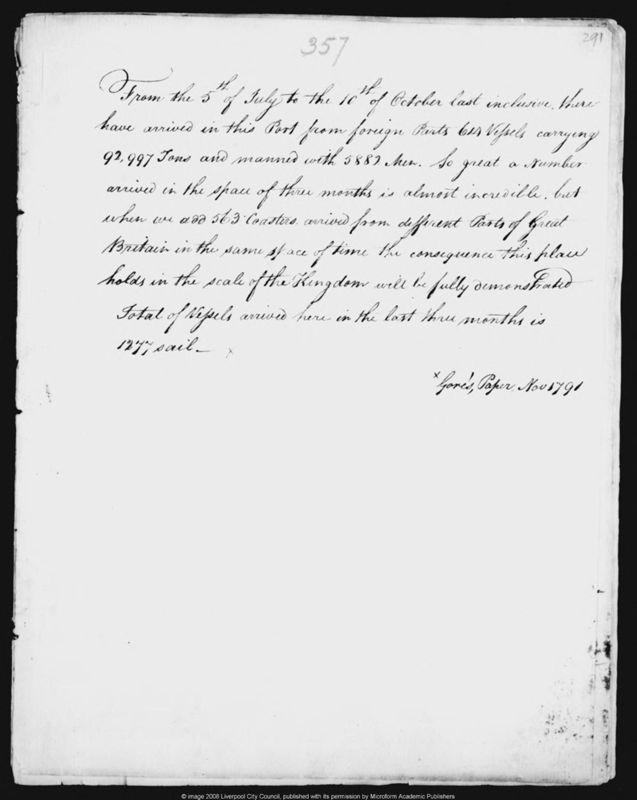 357
291
From the 5th of July to the 10th of October last inclusive, there
have arrived in this Port from foreign Parts 614 Vessels carrying
92,997 Tons and manned with 5882 Men. So great a Number
arrived in the space of three months is almost incredible, but
when we add 563 Coasters arrived from different Parts of Great
Britain in the same space of time the consequence this place
holds in the scale of the Kingdom will be fully demonstrated
Total of Vessels arrived here in the last three months is
1277 sail — x
x Gore's, Paper, Nov 1791
© image 2008 Liverpool City Council, published with its permission by Microform Academic Publishers